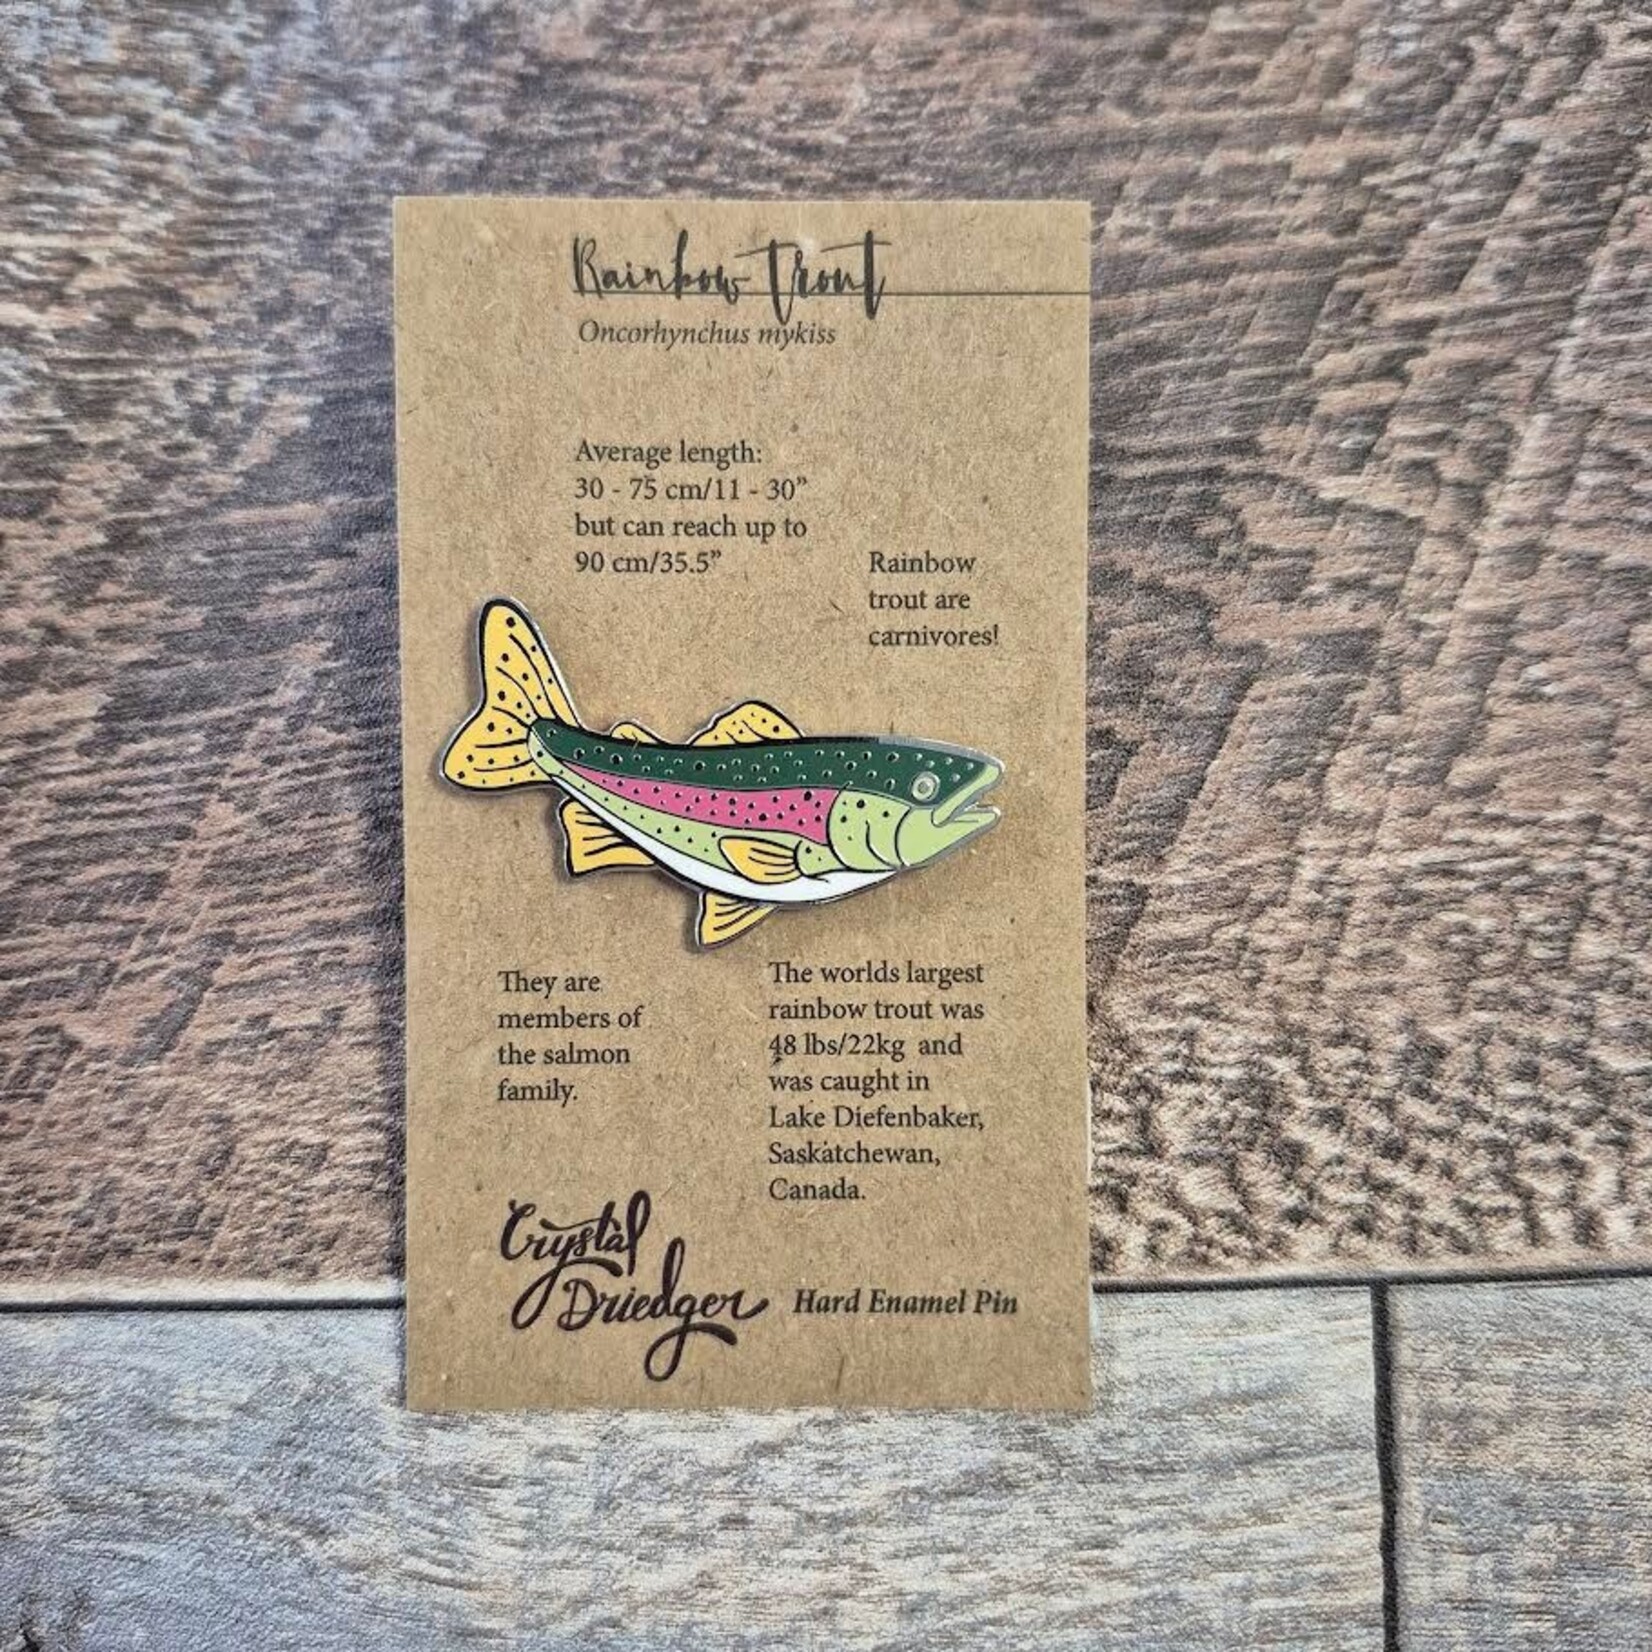 Rainbow Trout
Oncorhynchus mykiss
Average length:
30 - 75 cm/11 - 30”
but can reach up to
90 cm/35.5”
Rainbow
trout are
carnivores!
They are
members of
the salmon
family.
The worlds largest
rainbow trout was
48 lbs/22kg and
was caught in
Lake Diefenbaker,
Saskatchewan,
Canada.
Crystal
Driedger
Hard Enamel Pin